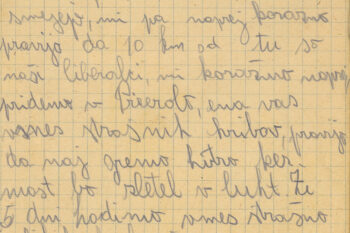 smejejo, mi pa naprej korajžno
pravijo da 10 km od tu so
naši liberalci, mi korajžno naprej
pridemo v , ena vas
vmes strašnih hribov, pravijo
da naj gremo hitro ker
most bo zletel v luht. Že
5 dni hodimo vmes strašno